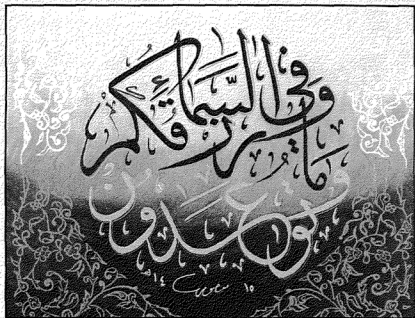 وَفِي السَّمَاءِ رِزْقُكُمْ
وَمَا تُوعَدُونَ